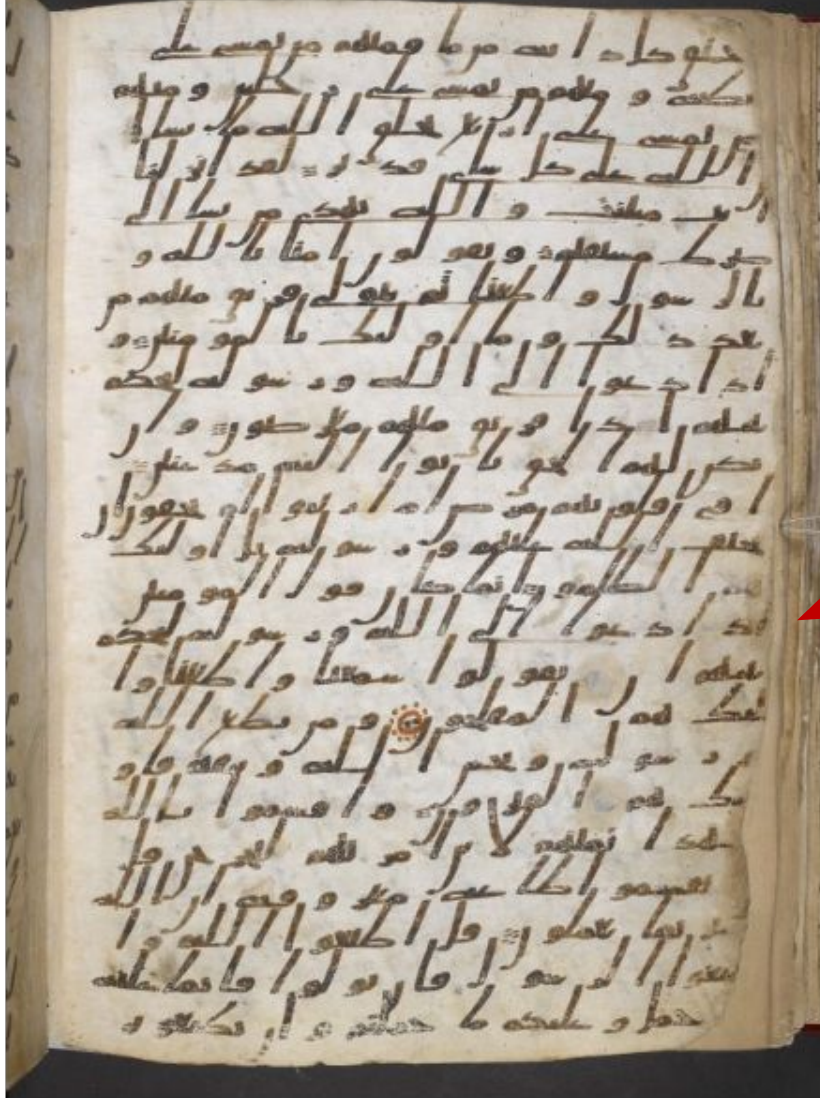 خلق كل دابه من ما فمنهم من يمشى على
بطنه و منهم من يمشى على رجلين و منهم
من يمشى على اربع يخلق الله ما يشا ا
ن الله على كل شى قدير لقد انزلنا
ايت مبينت و الله يهدى من يشا الى
صرط مستقيم و يقولون امنا بالله و
بالرسول و اطعنا ثم يتولى فريق منهم من
بعد ذلك و ما اولئك بالمومنين و
اذا دعوا الى الله و رسوله ليحكم
بينهم اذا فريق منهم معرضون و ان
يكن لهم الحق ياتوا اليه مذعنين
افى قلوبهم مرض ام ارتابوا ام يخافون ان
يحيف الله عليهم و رسوله بل اولئك
هم الظلمون انما كان قول المومنين
اذا دعوا الى الله و رسوله ليحكم
بينهم ان يقولوا سمعنا و اطعنا و ا
ولئك هم المفلحون و من يطع الله
و رسوله و يخش الله و يتقه فاو
لئك هم الفايزون و اقسموا بالله
جهد ايمنهم لين امرتهم ليخرجن قل
لا تقسموا طاعه معروفه ان الله
خبير بما تعملون قل اطيعوا الله و ا
طيعوا الرسول فان تولوا فانما عليه
ما حمل و عليكم ما حملتم و ان تطيعو